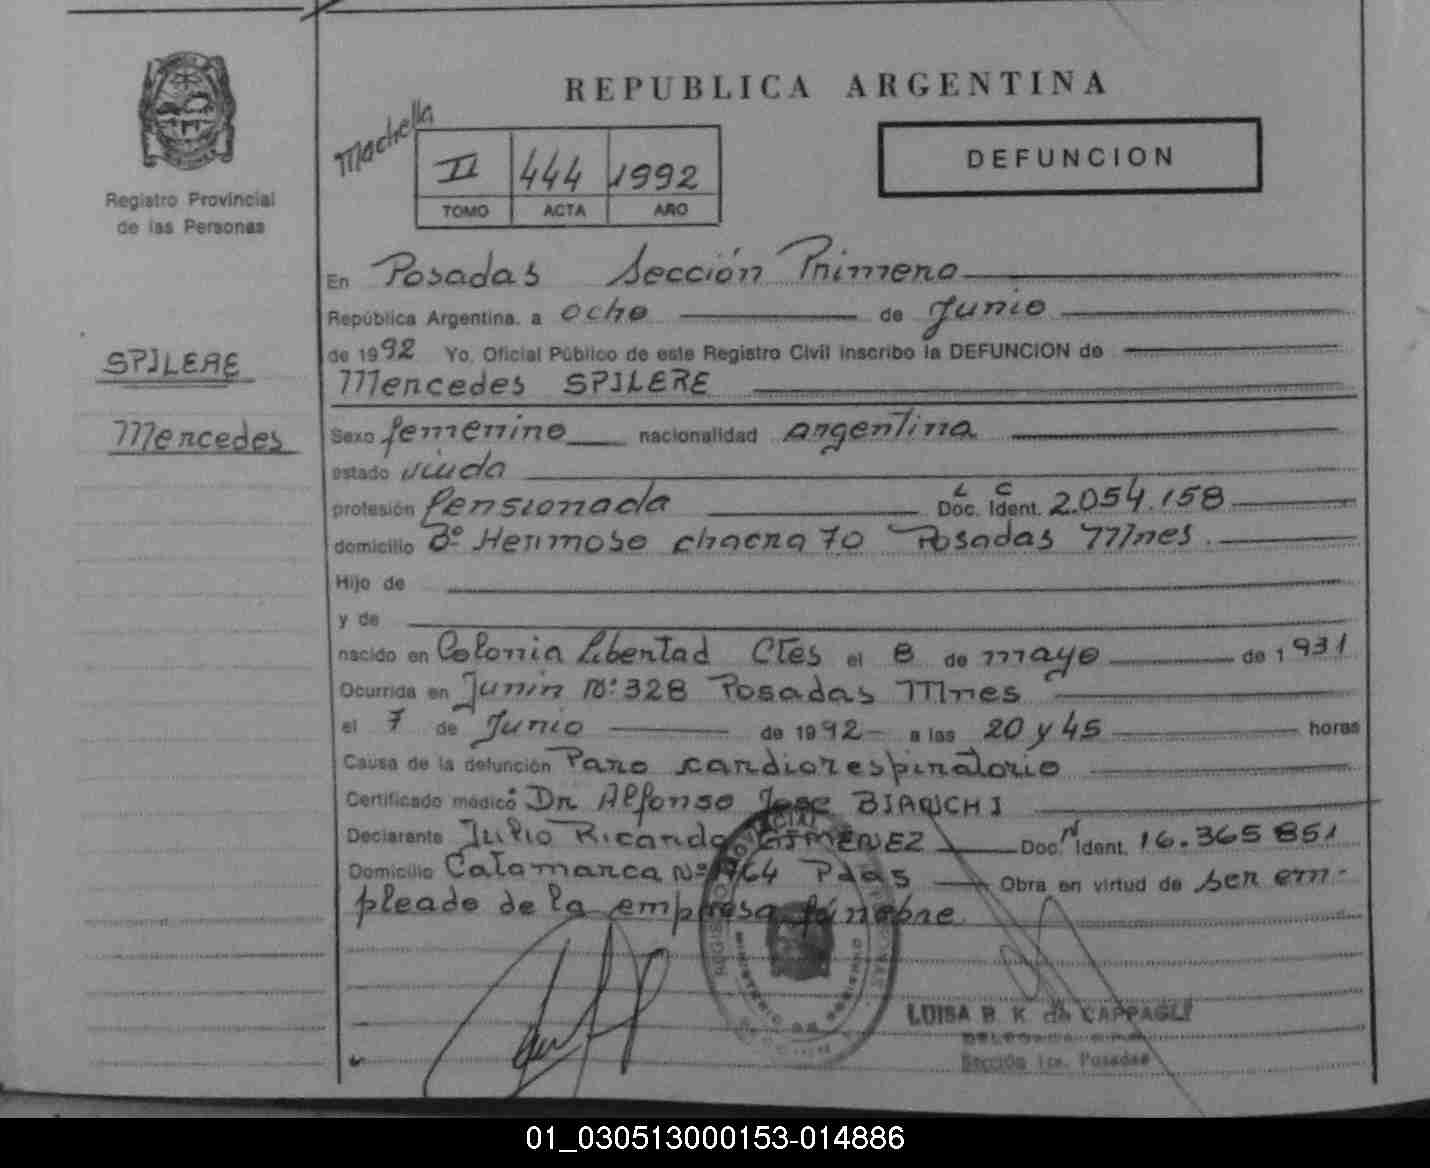 REPUBLICA ARGENTINA
Machella
II 444 1992
TOMO ACTA AÑO
DEFUNCION
Registro Provincial
de las Personas
SPILERE
Mercedes
En Posadas Sección Primera
República Argentina, a ocho de Junio
de 1992 Yo, Oficial Público de este Registro Civil inscribo la DEFUNCION de
Mercedes SPILERE
Sexo femenino nacionalidad argentina
estado viuda
profesión Pensionada Doc. Ident. L C 2.054.158
domicilio Bº Hermoso chacra 70 Posadas Mnes.
Hijo de
y de
nacido en Colonia Libertad Ctes el 8 de mayo de 1931
Ocurrida en Junin Nº 328 Posadas Mnes
el 7 de Junio de 1992 a las 20 y 45 horas
Causa de la defunción Paro cardiorespiratorio
Certificado médico Dr Alfonso Jose BIANCHI
Declarante Julio Ricardo GIMENEZ Doc. Ident. N 16.365851
Domicilio Catamarca Nº 1464 Pdas Obra en virtud de ser em-
pleado de la empresa fúnebre
LUISA B. K. de CAPPAGLI
Sección 1ra. Posadas
01_030513000153-014886